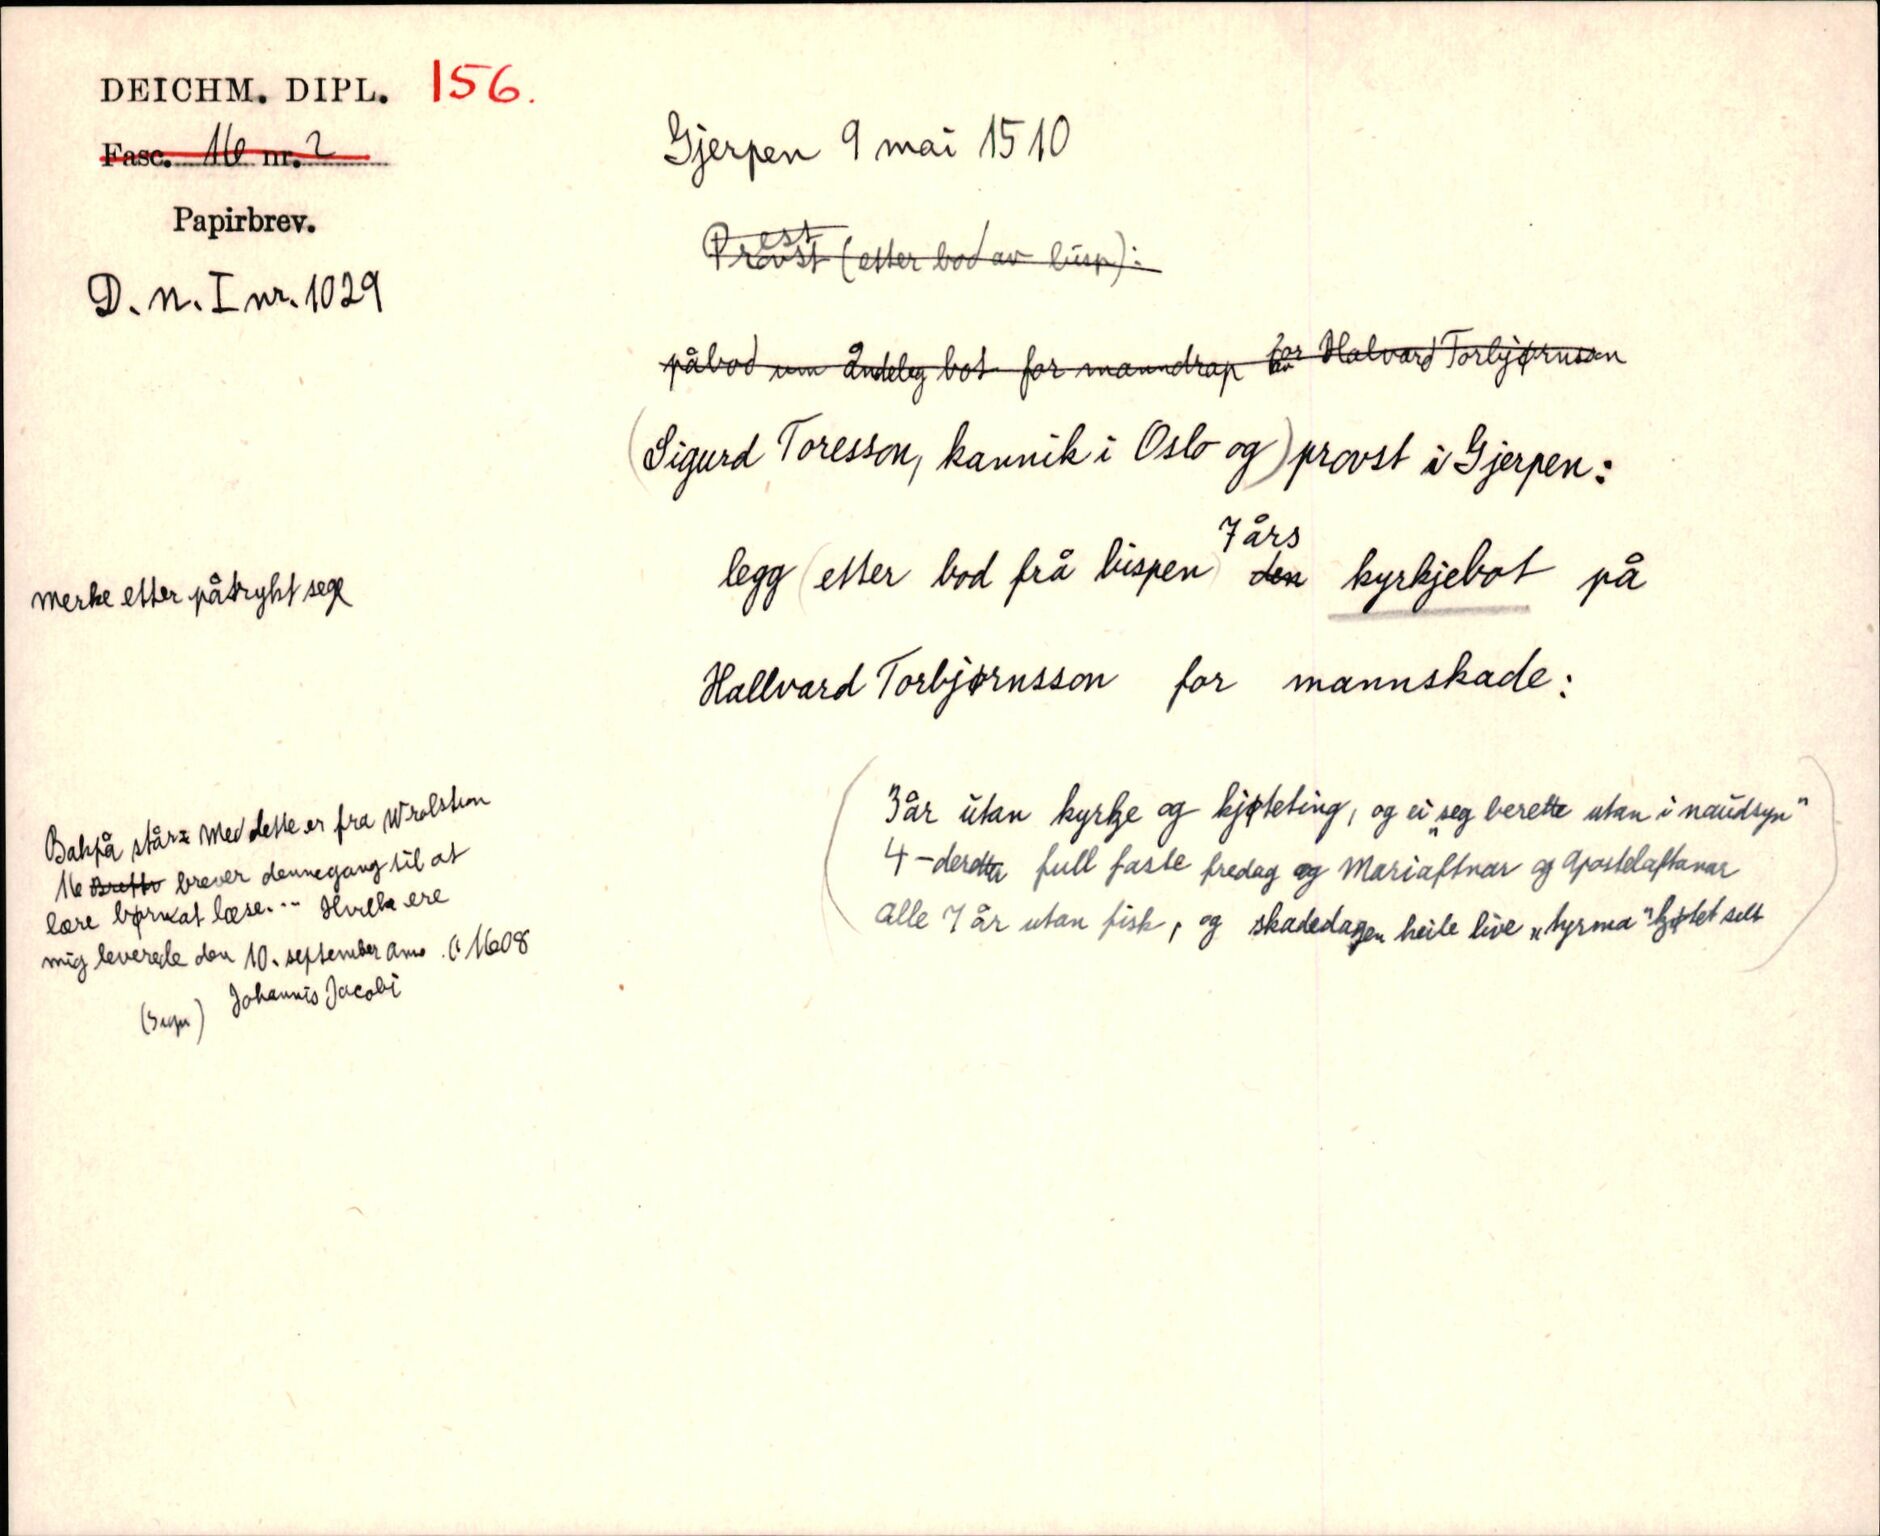 DEICHM. DIPL. 156.
Fasc. 16 nr. 2
Papirbrev.
D. n. I nr. 1029
merke etter påtrykt segl
Bakpå står: Med dette er fra Wrolstwn
16 Breffv brever dennegang til at
lære børn at læse. -- Hvilke ere
mig leverede den 10. september Anno 1608
(Sign) Johannis Jacobi
Gjerpen 9 mai 1510
est
Provst (etter bod av bisp):
påbod um åndeleg bot for manndrap for Halvard Torbjørnsson
(Sigurd Toresson, kannik i Oslo og) provst i Gjerpen:
7 års
legg (etter bod frå bispen) den kyrkjebot på
Hallvard Torbjørnsson for mannskade:
(3 år utan kyrkje og kjøteting, og ei "seg berette utan i naudsyn"
4 - deretter full faste fredag og Mariaftnar og Apostelaftanar
alle 7 år utan fisk, og skadedagen heile live „tyrma" kjøtet selt)